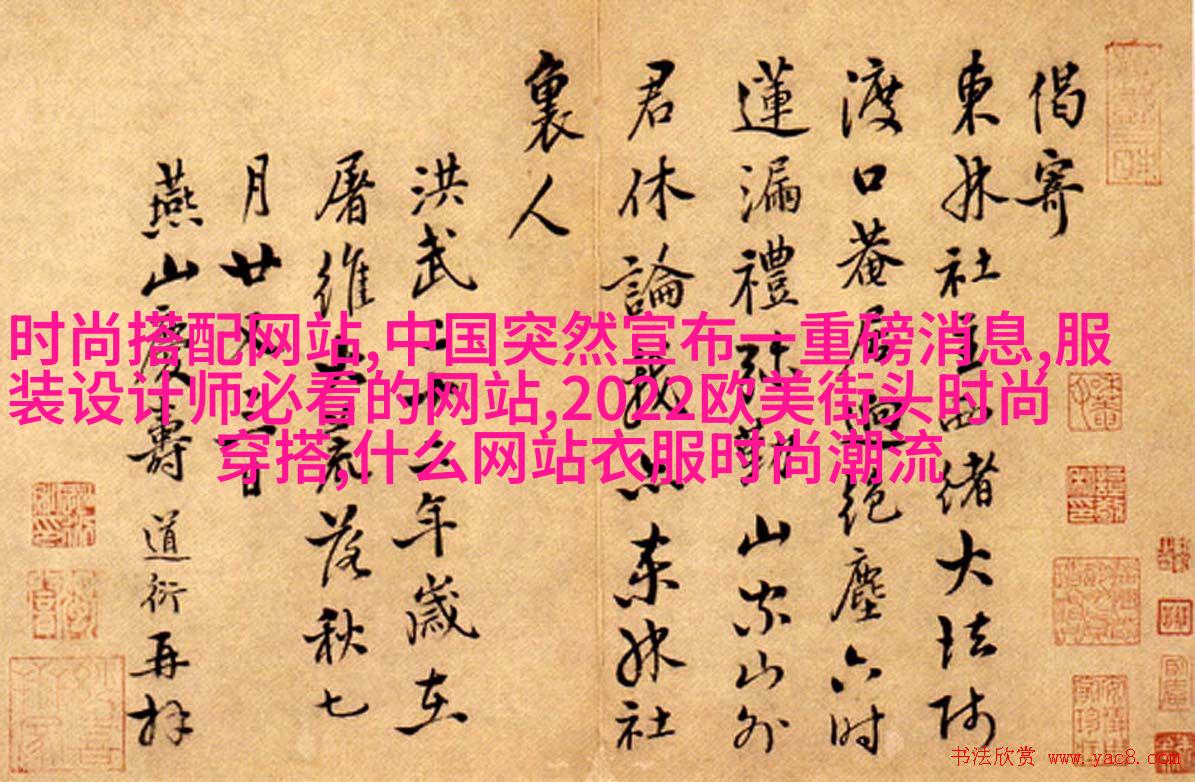 时尚搭配网站,中国突然宣布一重磅消息,服
装设计师必看的网站,2022欧美街头时尚
穿搭,什么网站衣服时尚潮流
偈寄
東林社主西緒大法師
渡口菴居絕塵六時
蓮漏禮弥勤山宗山外
君休論我東林社
裏人
洪武二十二年歲在
屠維大荒落秋七
月廿
燕山慶壽道衍再拜
书法欣赏 www.yac8.com